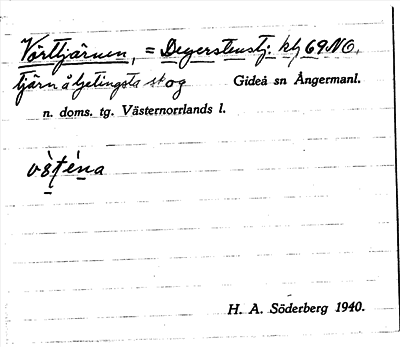 Vörttjärnen, = Degerstenstj. kbl 69NO,
tjärn å Getingsta skog Gideå sn Ångermanl.
n. doms. tg. Västernorrlands l.
H. A. Söderberg 1940.